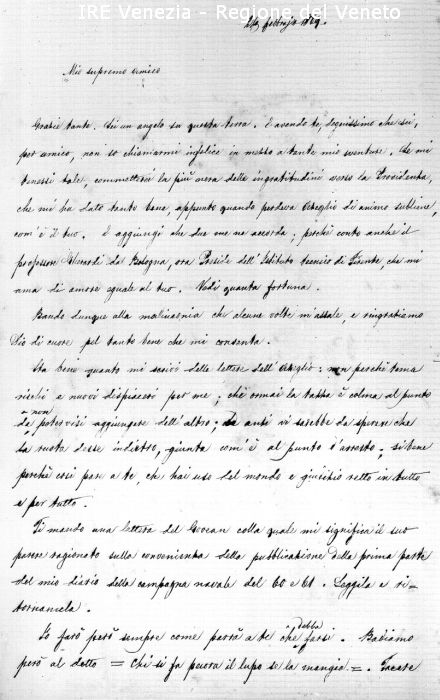 IRE Venezia - Regione del Veneto
febbrajo 1869.
Mio supremo amico
Grazie tanto. Sei un angelo su questa terra. E avendo te, degnissimo che sei,
per amico, non so chiamarmi infelice in mezzo a tante mie sventure. Se mi
tenessi tale, commetterei la più nera delle ingratitudini verso la Provvidenza,
che mi ha dato tanto bene, appunto quando perdeva di animo sublime,
com'è il tuo. E aggiungi che due me ne accorda; perchè conto anche il
professore da Bologna, ora Preside dell'Istituto tecnico di Firenze, che mi
ama di amore eguale al tuo. Vedi quanta fortuna.
Bando dunque alla malinconia che alcune volte m'assale, e ringraziamo
Dio di cuore pel tanto bene che mi consenta.
Sta bene quanto mi scrivi delle lettere dell' : non perchè tema
rischi e nuovi dispiaceri per me; chè ormai la tazza è colma al punto
da non potervisi aggiungere dell'altro; anzi vi sarebbe da sperare che
la ruota desse indietro, giunta com'è al punto d'arresto; sibbene
perchè così pare a te, che hai uso del mondo e giudizio retto in tutto
e per tutto.
Ti mando una lettera del colla quale mi significa il suo
parere ragionato sulla convenienza della pubblicazione della prima parte
del mio diario della campagna navale del 60 e 61. Leggila e ri-
tornamela.
Io farò però sempre come parrà a te che debba farsi. Badiamo
però al detto = Chi si fa pecora il lupo se la mangia =. Tacere